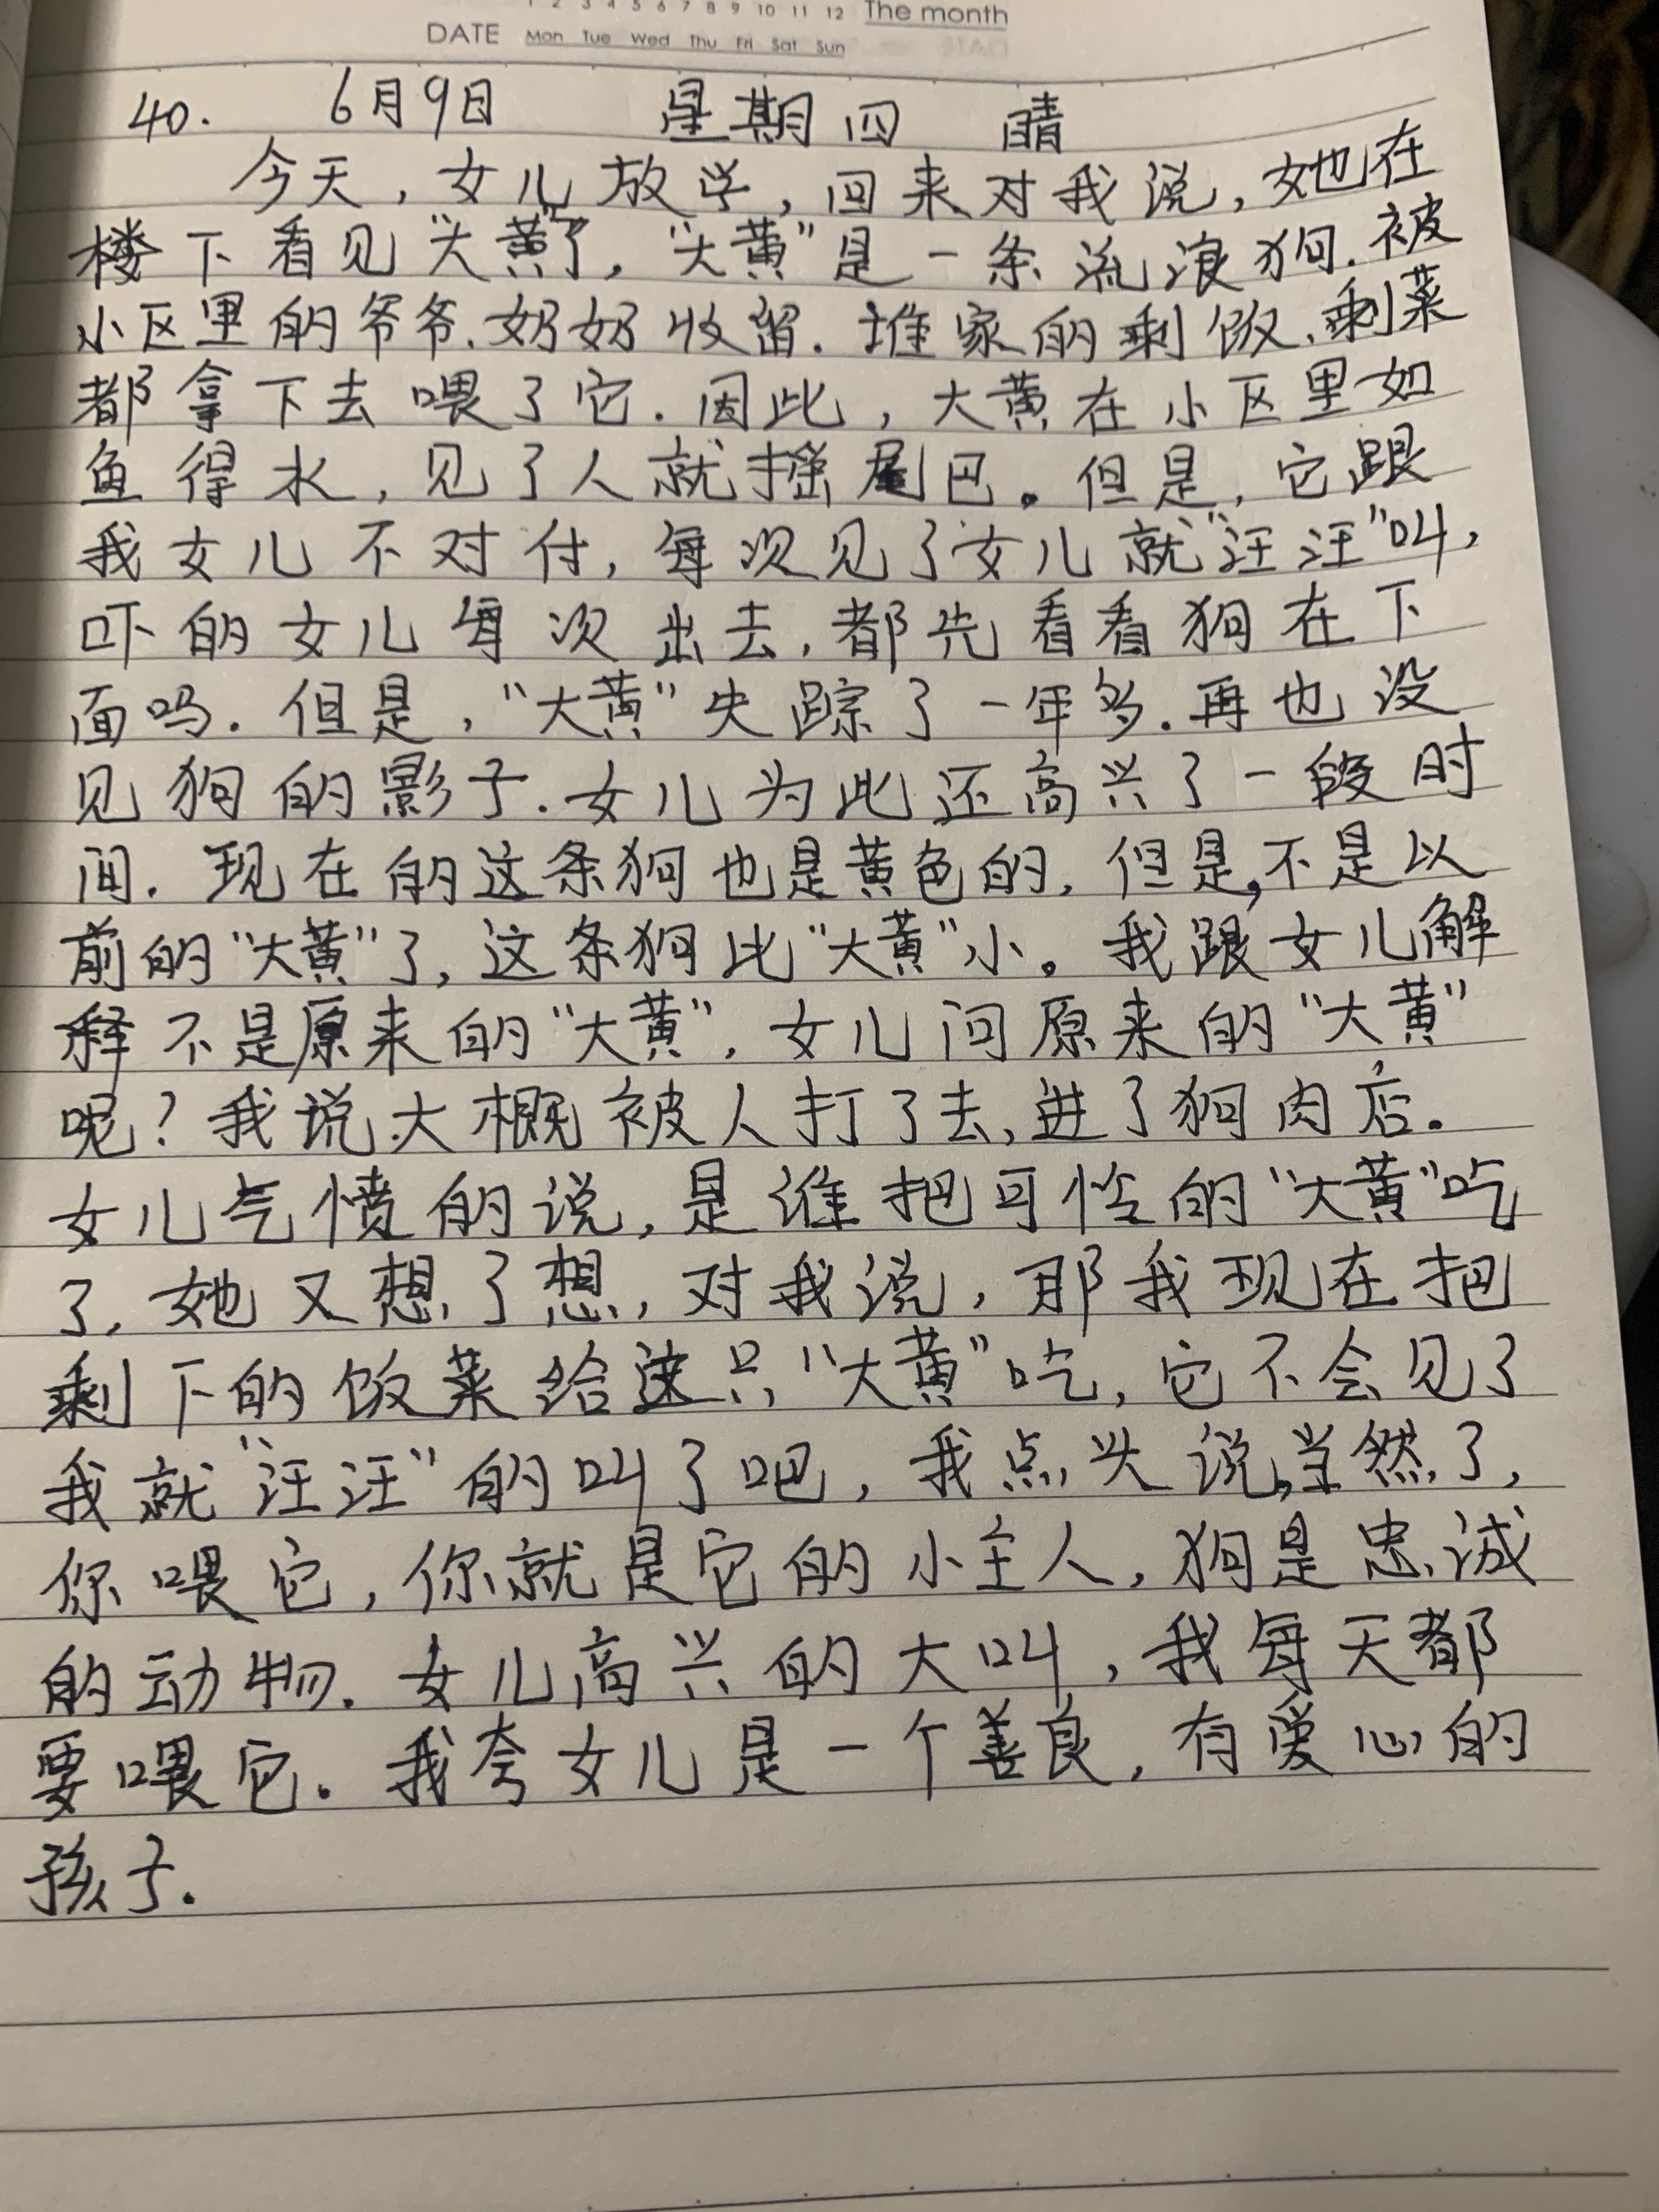 1 2 3 4 5 6 7 8 9 10 11 12 The month
DATE Mon Tue Wed Thu Fri Sat Sun
40. 6月9日 星期四 晴
今天,女儿放学,回来对我说,她在
楼下看见“大黄”了,“大黄”是一条流浪狗.被
小区里的爷爷.奶奶收留.谁家的剩饭.剩菜
都拿下去喂了它.因此,大黄在小区里如
鱼得水,见了人就摇尾巴。但是,它跟
我女儿不对付,每次见了女儿就“汪汪”叫,
吓的女儿每次出去,都先看看狗在下
面吗.但是,“大黄”失踪了一年多.再也没
见狗的影子.女儿为此还高兴了一段时
间.现在的这条狗也是黄色的,但是,不是以
前的“大黄”了,这条狗比“大黄”小。我跟女儿解
释不是原来的“大黄”,女儿问原来的“大黄”
呢?我说大概被人打了去,进了狗肉店.
女儿气愤的说,是谁把可怜的“大黄”吃
了,她又想了想,对我说,那我现在把
剩下的饭菜给这只“大黄”吃,它不会见了
我就“汪汪”的叫了吧,我点头说,当然了,
你喂它,你就是它的小主人,狗是忠诚
的动物.女儿高兴的大叫,我每天都
要喂它.我夸女儿是一个善良,有爱心的
孩子.